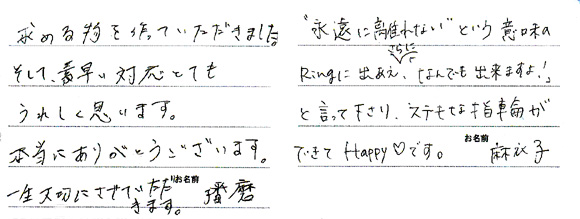 求める物を作っていただきました。
そして、素早い対応とても
うれしく思います。
本当にありがとうございます。
一生大切にさせていただ
きます。
お名前
播磨
"永遠に離れない"という意味の
さらに
Ringに出あえ、「なんでも出来ますよ!」
と言って下さり、ステキな指輪が
できて Happy♡です。
お名前
麻衣子